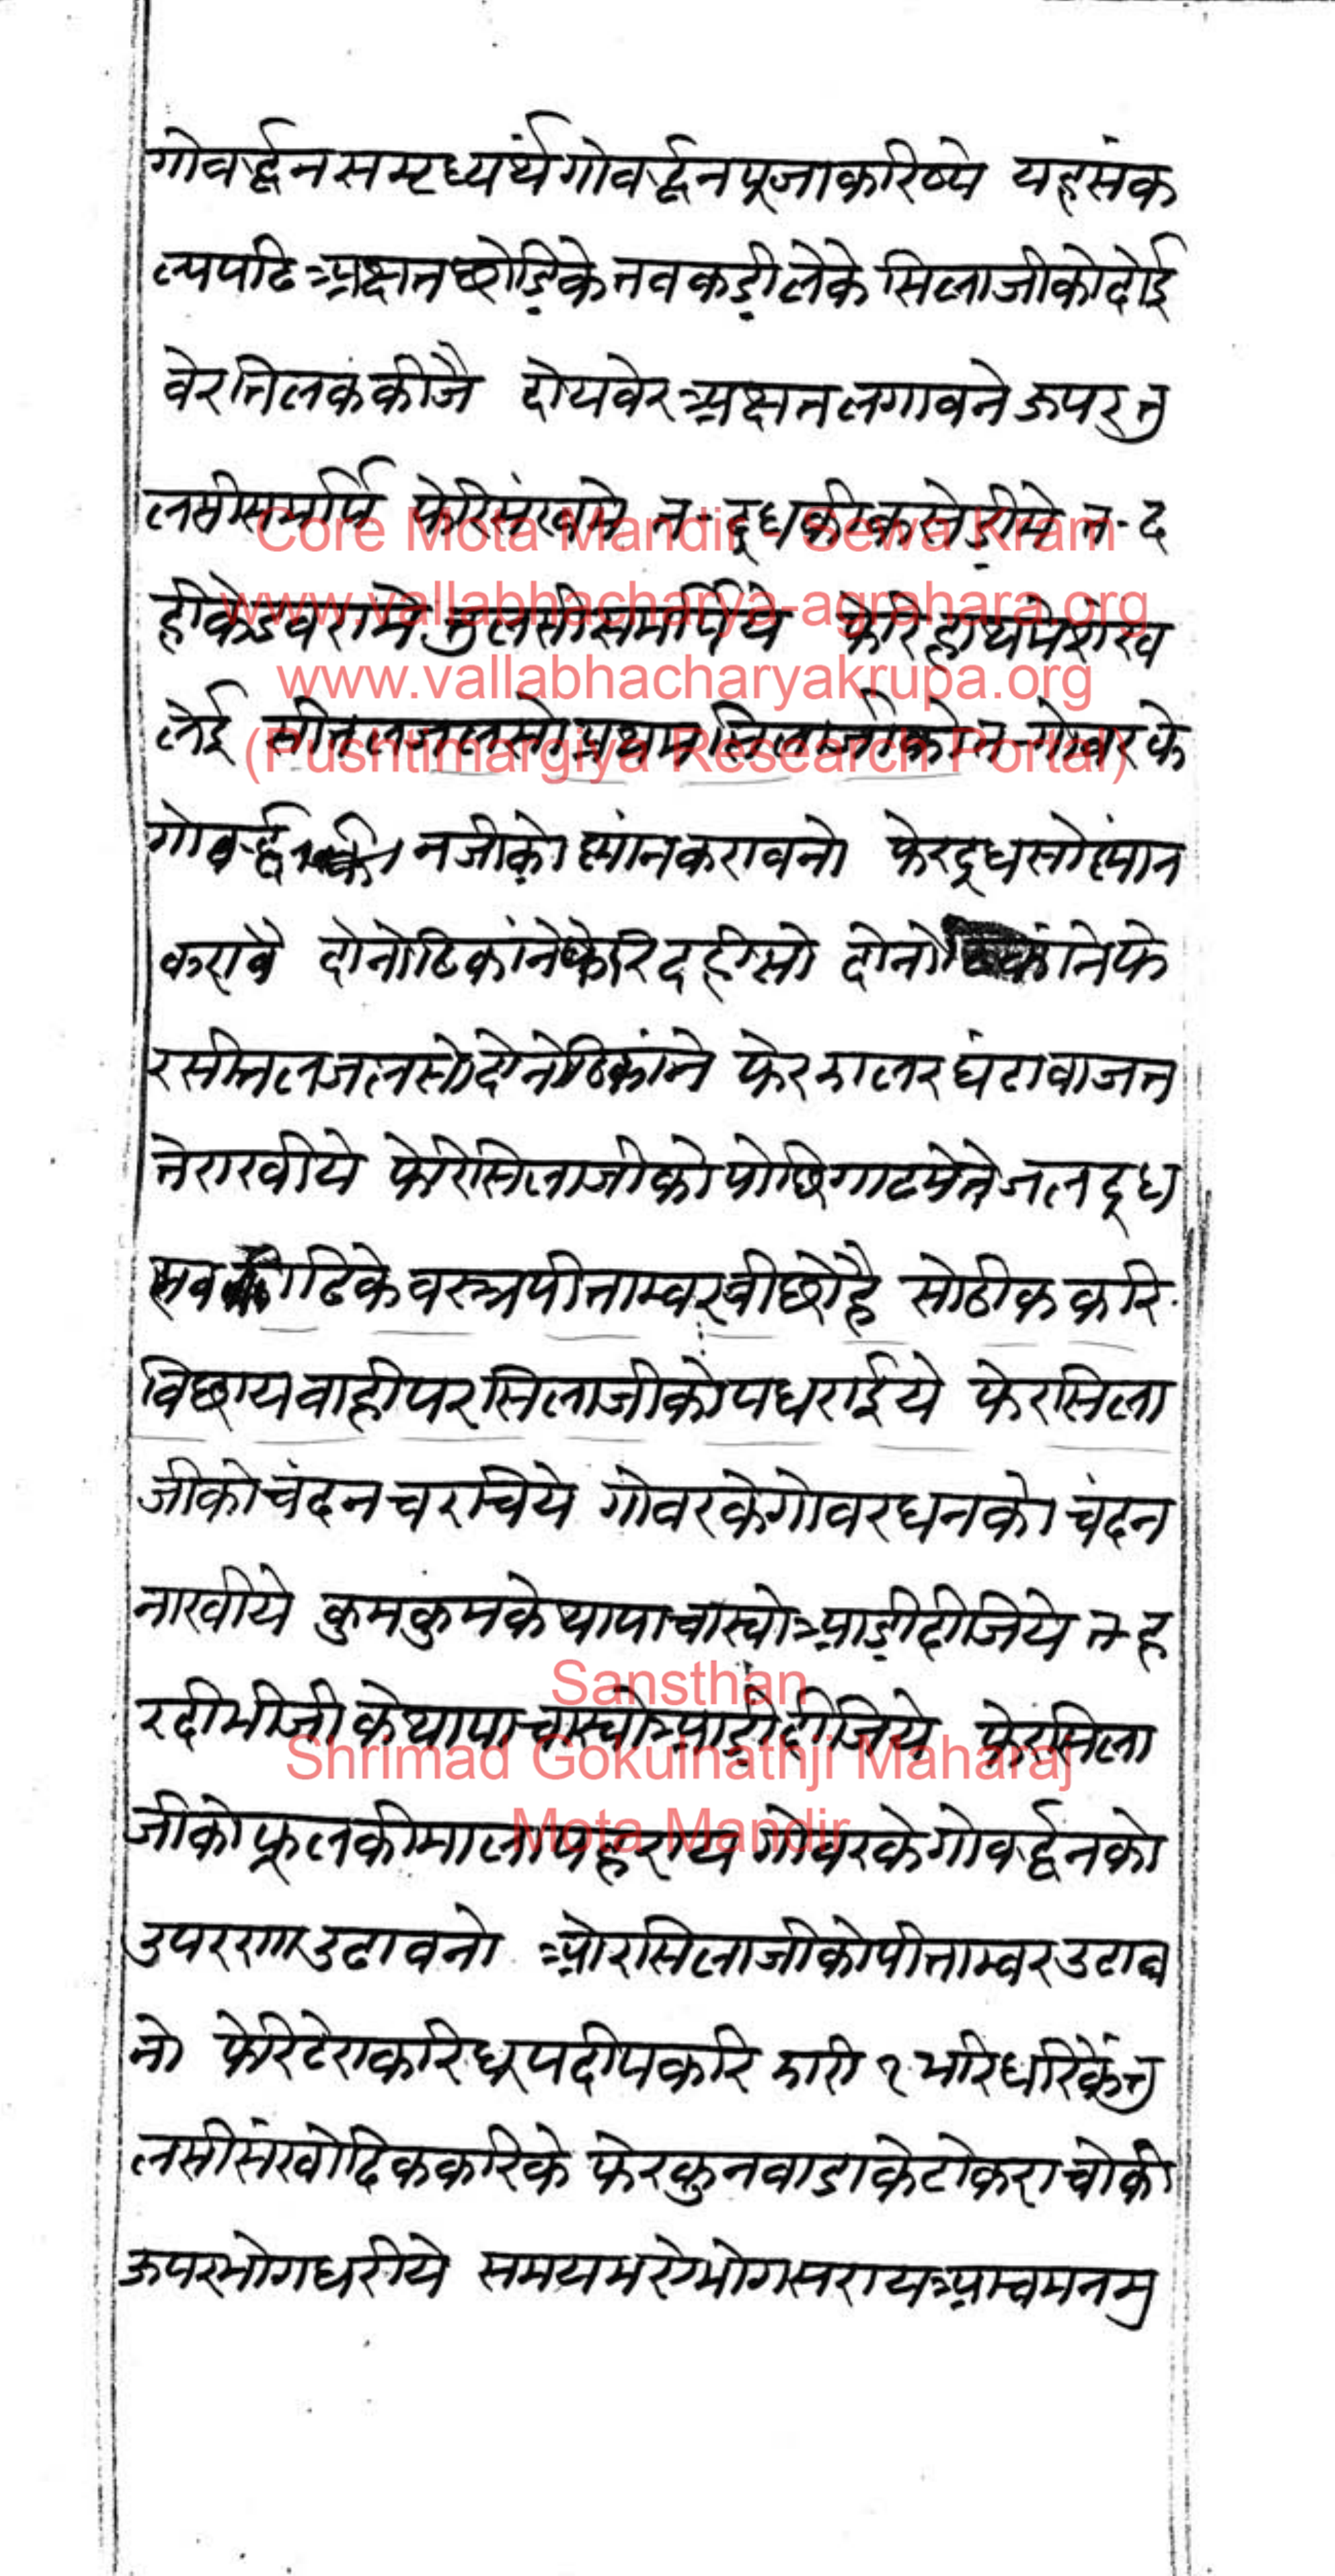 गोवर्द्धनसमृध्यर्थंगोवर्द्धनपूजाकरिष्ये यहसंक
ल्पपढिअक्षतछोडिकेतवकड़ीलेके सिलाजीकोदोई
वेरतिलककीजै दोयवेरअक्षतलगावनेऊपरतु
लसीसमर्पि फेरिसंखमे त-दूधकीकसेड़ीमे त-द
हीकेडवरामे तुलसीसमर्पिये फेरिहाथमेशंख
लेई सीतलजलसोप्रथमसिलाजीकोत-गोवरके
गोवर्द्धनजीकोस्नांनकरावनो फेरदूधसोस्नांन
करावै दोनोठिकांनेफेरिदहीसो दोनोठिकांनेफे
रसीतलजलसोदोनोठिकांने फेरझालरघंटावाजत
तेराखीये फेरिसिलाजीकोपोछिगाटमेतेजलदूध
सवकाढिकेवस्त्रपीताम्वरवीछोहै सोठीककरि
विछायवाहीपरसिलाजीकोपधराईये फेरसिला
जीकोचंदनचरचिये गोवरकेगोवरधनको चंदन
नाखीये कुमकुमकेथापाचास्योआड़ीदीजिये त-ह
रदीमीजीकेथापाचास्योआड़ीदीजिये फेरसिला
जीकोफूलकीमालापहराय गोवरकेगोवर्द्धनको
उपररागाउढावनो ओरसिलाजीकोपीताम्वरउढाव
नो फेरिटेराकरिधूपदीपकरि झारी १ भरिधरिकेंतु
लसीसंखोदिककरिके फेरकुनवाडाकेटोकराचोकी
ऊपरभोगधरीये समयभरेभोगसरायआचमनमु
Core Mota Mandir - Sewa Kram
www.vallabhacharya-agrahara.org
www.vallabhacharyakrupa.org
(Pushtimargiya Research Portal)
Sansthan
Shrimad Gokulnathji Maharaj
Mota Mandir